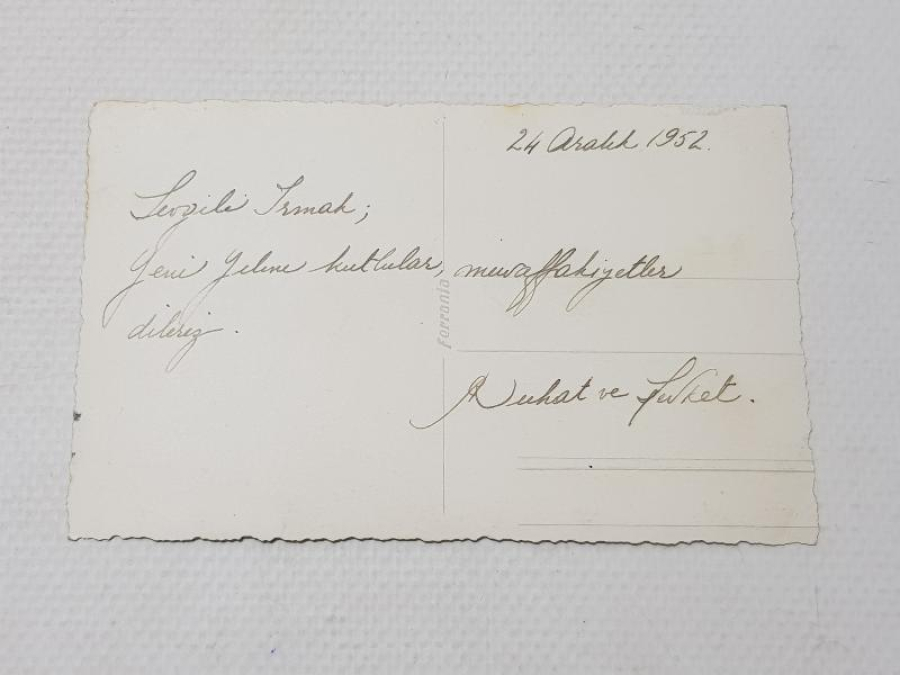 24 Aralık 1952.
Sevgili Irmak;
Yeni Yılını kutlular, muvaffakiyetler
dileriz.
ferrania
Nuhat ve Şevket.